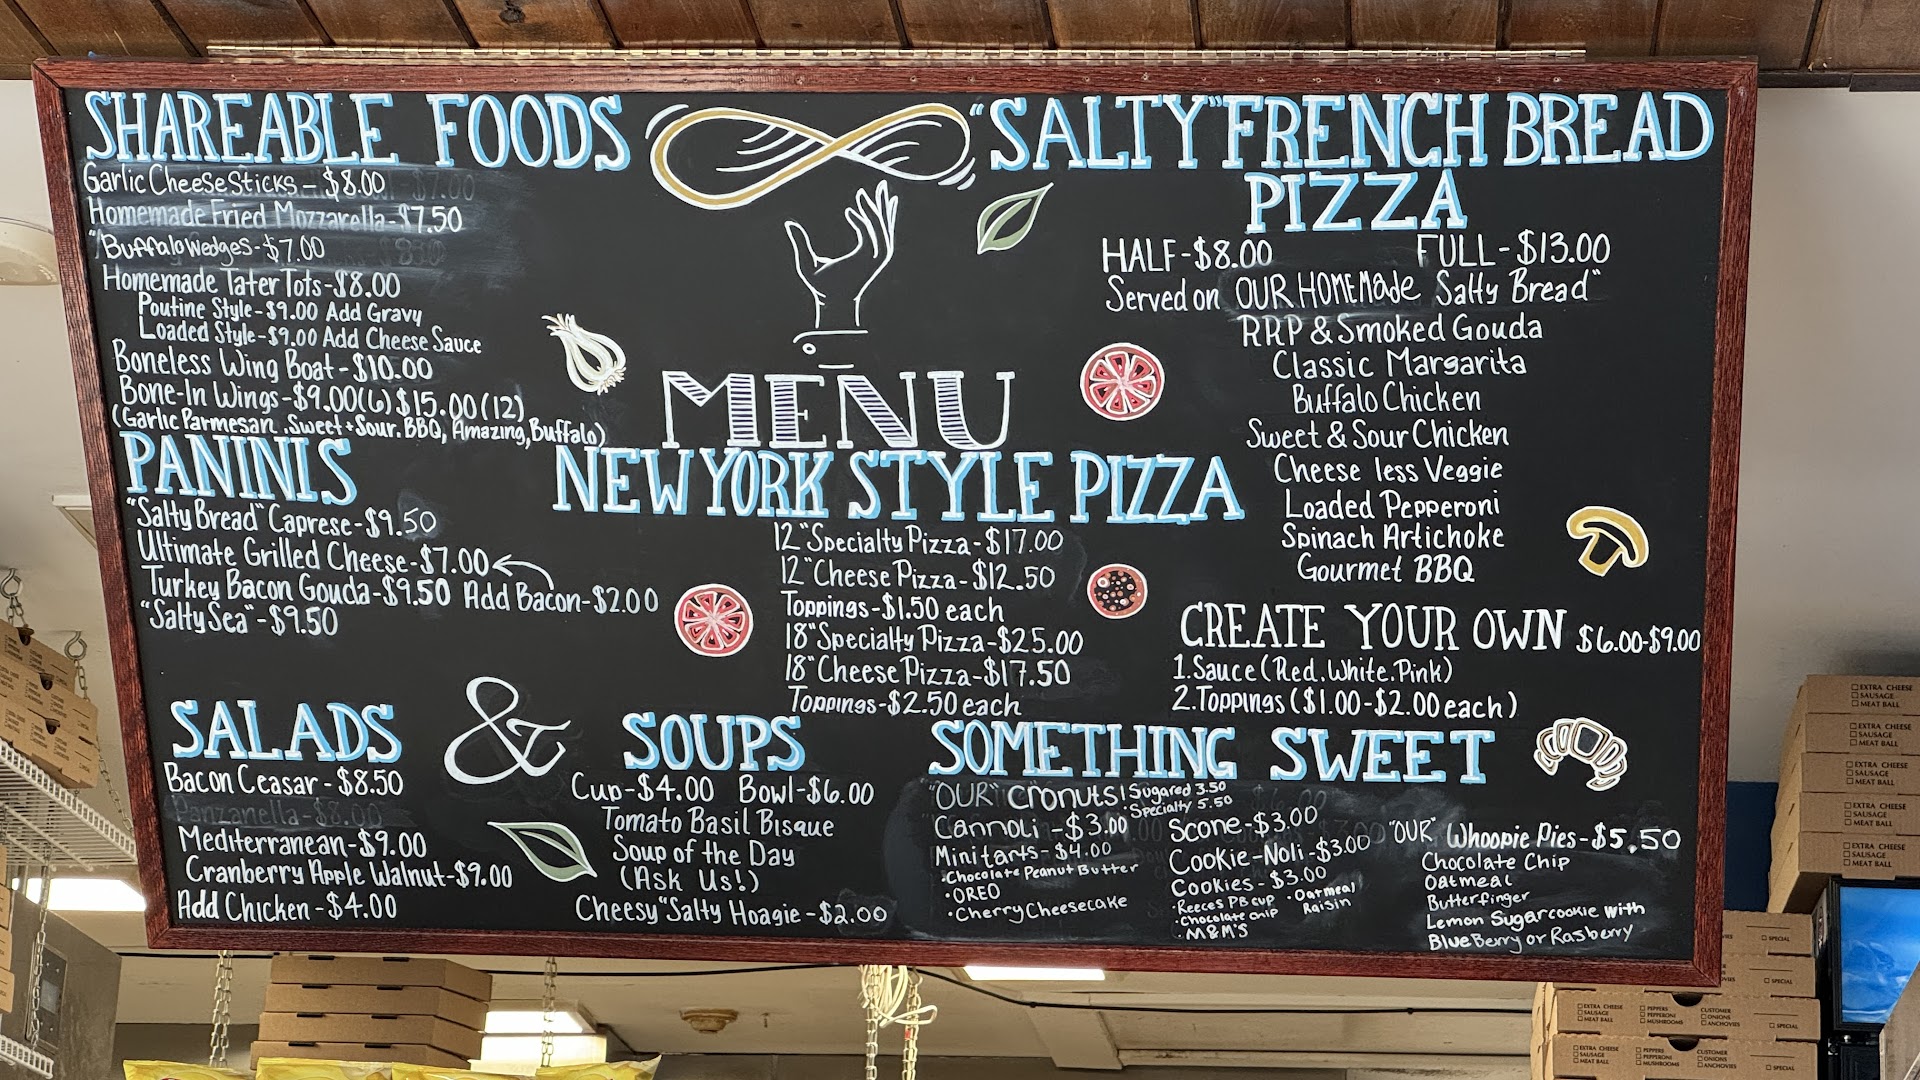 SHAREABLE FOODS
Garlic Cheese Sticks - $8.00
Homemade Fried Mozzarella - $7.50
"Buffalo Wedges - $7.00
Homemade Tater Tots - $8.00
Poutine Style - $9.00 Add Gravy
Loaded Style - $9.00 Add Cheese Sauce
Boneless Wing Boat - $10.00
Bone-In Wings - $9.00 (6) $15.00 (12)
(Garlic Parmesan, Sweet + Sour, BBQ, Amazing, Buffalo)
PANINIS
"Salty Bread" Caprese - $9.50
Ultimate Grilled Cheese - $7.00
Turkey Bacon Gouda - $9.50 Add Bacon - $2.00
"Salty Sea" - $9.50
SALADS
Bacon Ceasar - $8.50
Panzanella - $8.00
Mediterranean - $9.00
Cranberry Apple Walnut - $9.00
Add Chicken - $4.00
&
SOUPS
Cup - $4.00 Bowl - $6.00
Tomato Basil Bisque
Soup of the Day
(Ask Us!)
Cheesy "Salty Hoagie - $2.00
MENU
NEW YORK STYLE PIZZA
12" Specialty Pizza - $17.00
12" Cheese Pizza - $12.50
Toppings - $1.50 each
18" Specialty Pizza - $25.00
18" Cheese Pizza - $17.50
Toppings - $2.50 each
"SALTY" FRENCH BREAD
PIZZA
HALF - $8.00 FULL - $13.00
Served on OUR HOMEMade Salty Bread"
RRP & Smoked Gouda
Classic Margarita
Buffalo Chicken
Sweet & Sour Chicken
Cheese less Veggie
Loaded Pepperoni
Spinach Artichoke
Gourmet BBQ
CREATE YOUR OWN $6.00-$9.00
1. Sauce (Red, White, Pink)
2. Toppings ($1.00-$2.00 each)
SOMETHING SWEET
"OUR" Cronuts
Sugared 3.50
Specialty 5.50
Cannoli - $3.00
Mini tarts - $4.00
• Chocolate Peanut Butter
• OREO
• Cherry Cheesecake
Scone - $3.00
Cookie-Noli - $3.00
Cookies - $3.00
• Reeces PB cup
• Oatmeal Raisin
• Chocolate chip
• M&M'S
"OUR" Whoopie Pies - $5.50
Chocolate Chip
Oatmeal
Butterfinger
Lemon Sugarcookie with
BlueBerry or Rasberry
EXTRA CHEESE
SAUSAGE
MEAT BALL
EXTRA CHEESE
SAUSAGE
MEAT BALL
EXTRA CHEESE
SAUSAGE
MEAT BALL
EXTRA CHEESE
SAUSAGE
MEAT BALL
EXTRA CHEESE
SAUSAGE
MEAT BALL
SPECIAL
SPECIAL
EXTRA CHEESE PEPPERS CUSTOMER
SAUSAGE PEPPERONI ONIONS
MEAT BALL MUSHROOMS ANCHOVIES SPECIAL
EXTRA CHEESE PEPPERS CUSTOMER
SAUSAGE PEPPERONI ONIONS
MEAT BALL MUSHROOMS ANCHOVIES SPECIAL